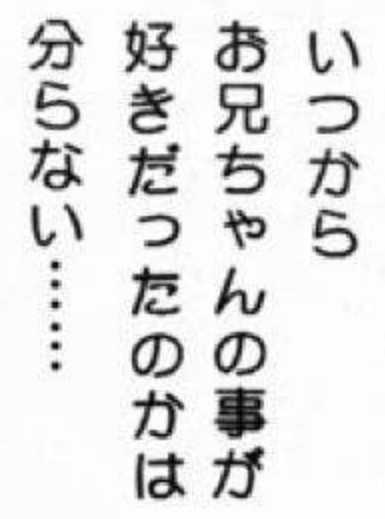 いつから
お兄ちゃんの事が
好きだったのかは
分らない……